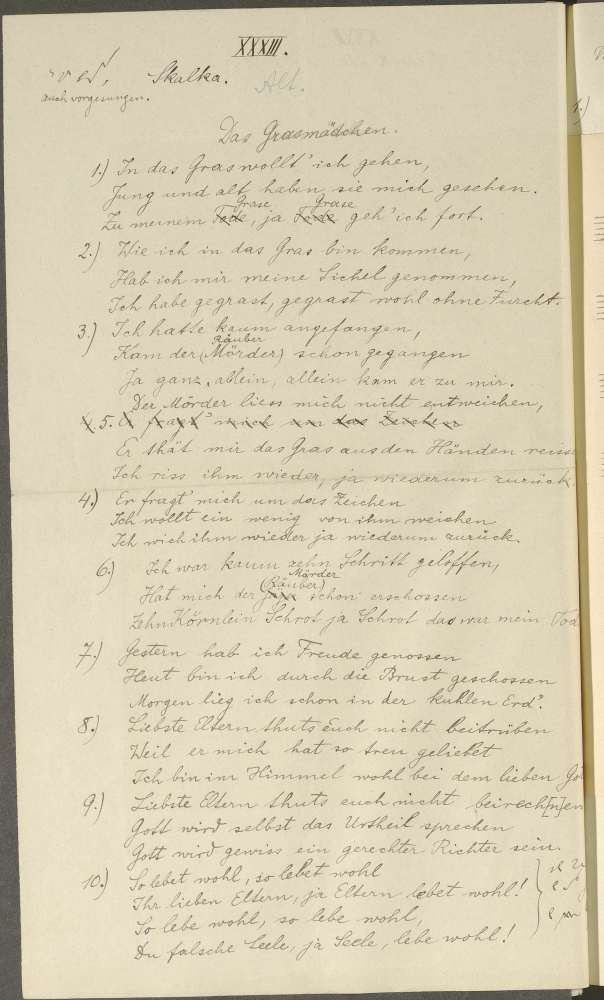 XXXIII.
Skalka.
Alt.
auch vorgesungen.
Das Grasmädchen.
1.) In das Gras wollt' ich gehen,
Jung und alt haben sie mich gesehen.
Grase Grase
Zu meinem Tode, ja Tode geh' ich fort.
2.) Wie ich in das Gras bin kommen,
Hab ich mir meine Sichel genommen,
Ich habe gegrast, gegrast wohl ohne Furcht.
3.) Ich hatte kaum angefangen,
Räuber
Kam der (Mörder) schon gegangen
Ja ganz, allein, allein kam er zu mir.
Der Mörder liess mich nicht entweichen,
5. Er fragt' mich um das Zeichen
Er thät mir das Gras aus den Händen reiss
Ich riss ihm wieder, ja wiederum zurück
4.) Er fragt' mich um das Zeichen
Ich wollt ein wenig von ihm weichen
Ich wich ihm wieder ja wiederum zurück.
6.) Ich war kaum zehn Schritt geloffen,
Mörder
(Räuber)
Hat mich der schon erschossen
Zehn Körnlein Schrot ja Schrot das war mein Tod
7.) Gestern hab ich Freude genossen
Heut bin ich durch die Brust geschossen
Morgen lieg ich schon in der kuhlen Erd'.
8.) Liebste Eltern thuts Euch nicht beitrüben
Weil er mich hat so treu geliebet
Ich bin im Himmel wohl bei dem lieben
9.) Liebste Eltern thuts euch nicht beirech[n]en
Gott wird selbst das Urtheil sprechen
Gott wird gewiss ein gerechter Richter sein.
10.) So lebet wohl, so lebet wohl
Ihr lieben Eltern, ja Eltern lebet wohl!
So lebe wohl, so lebe wohl,
Du falsche Seele, ja Seele, lebe wohl!